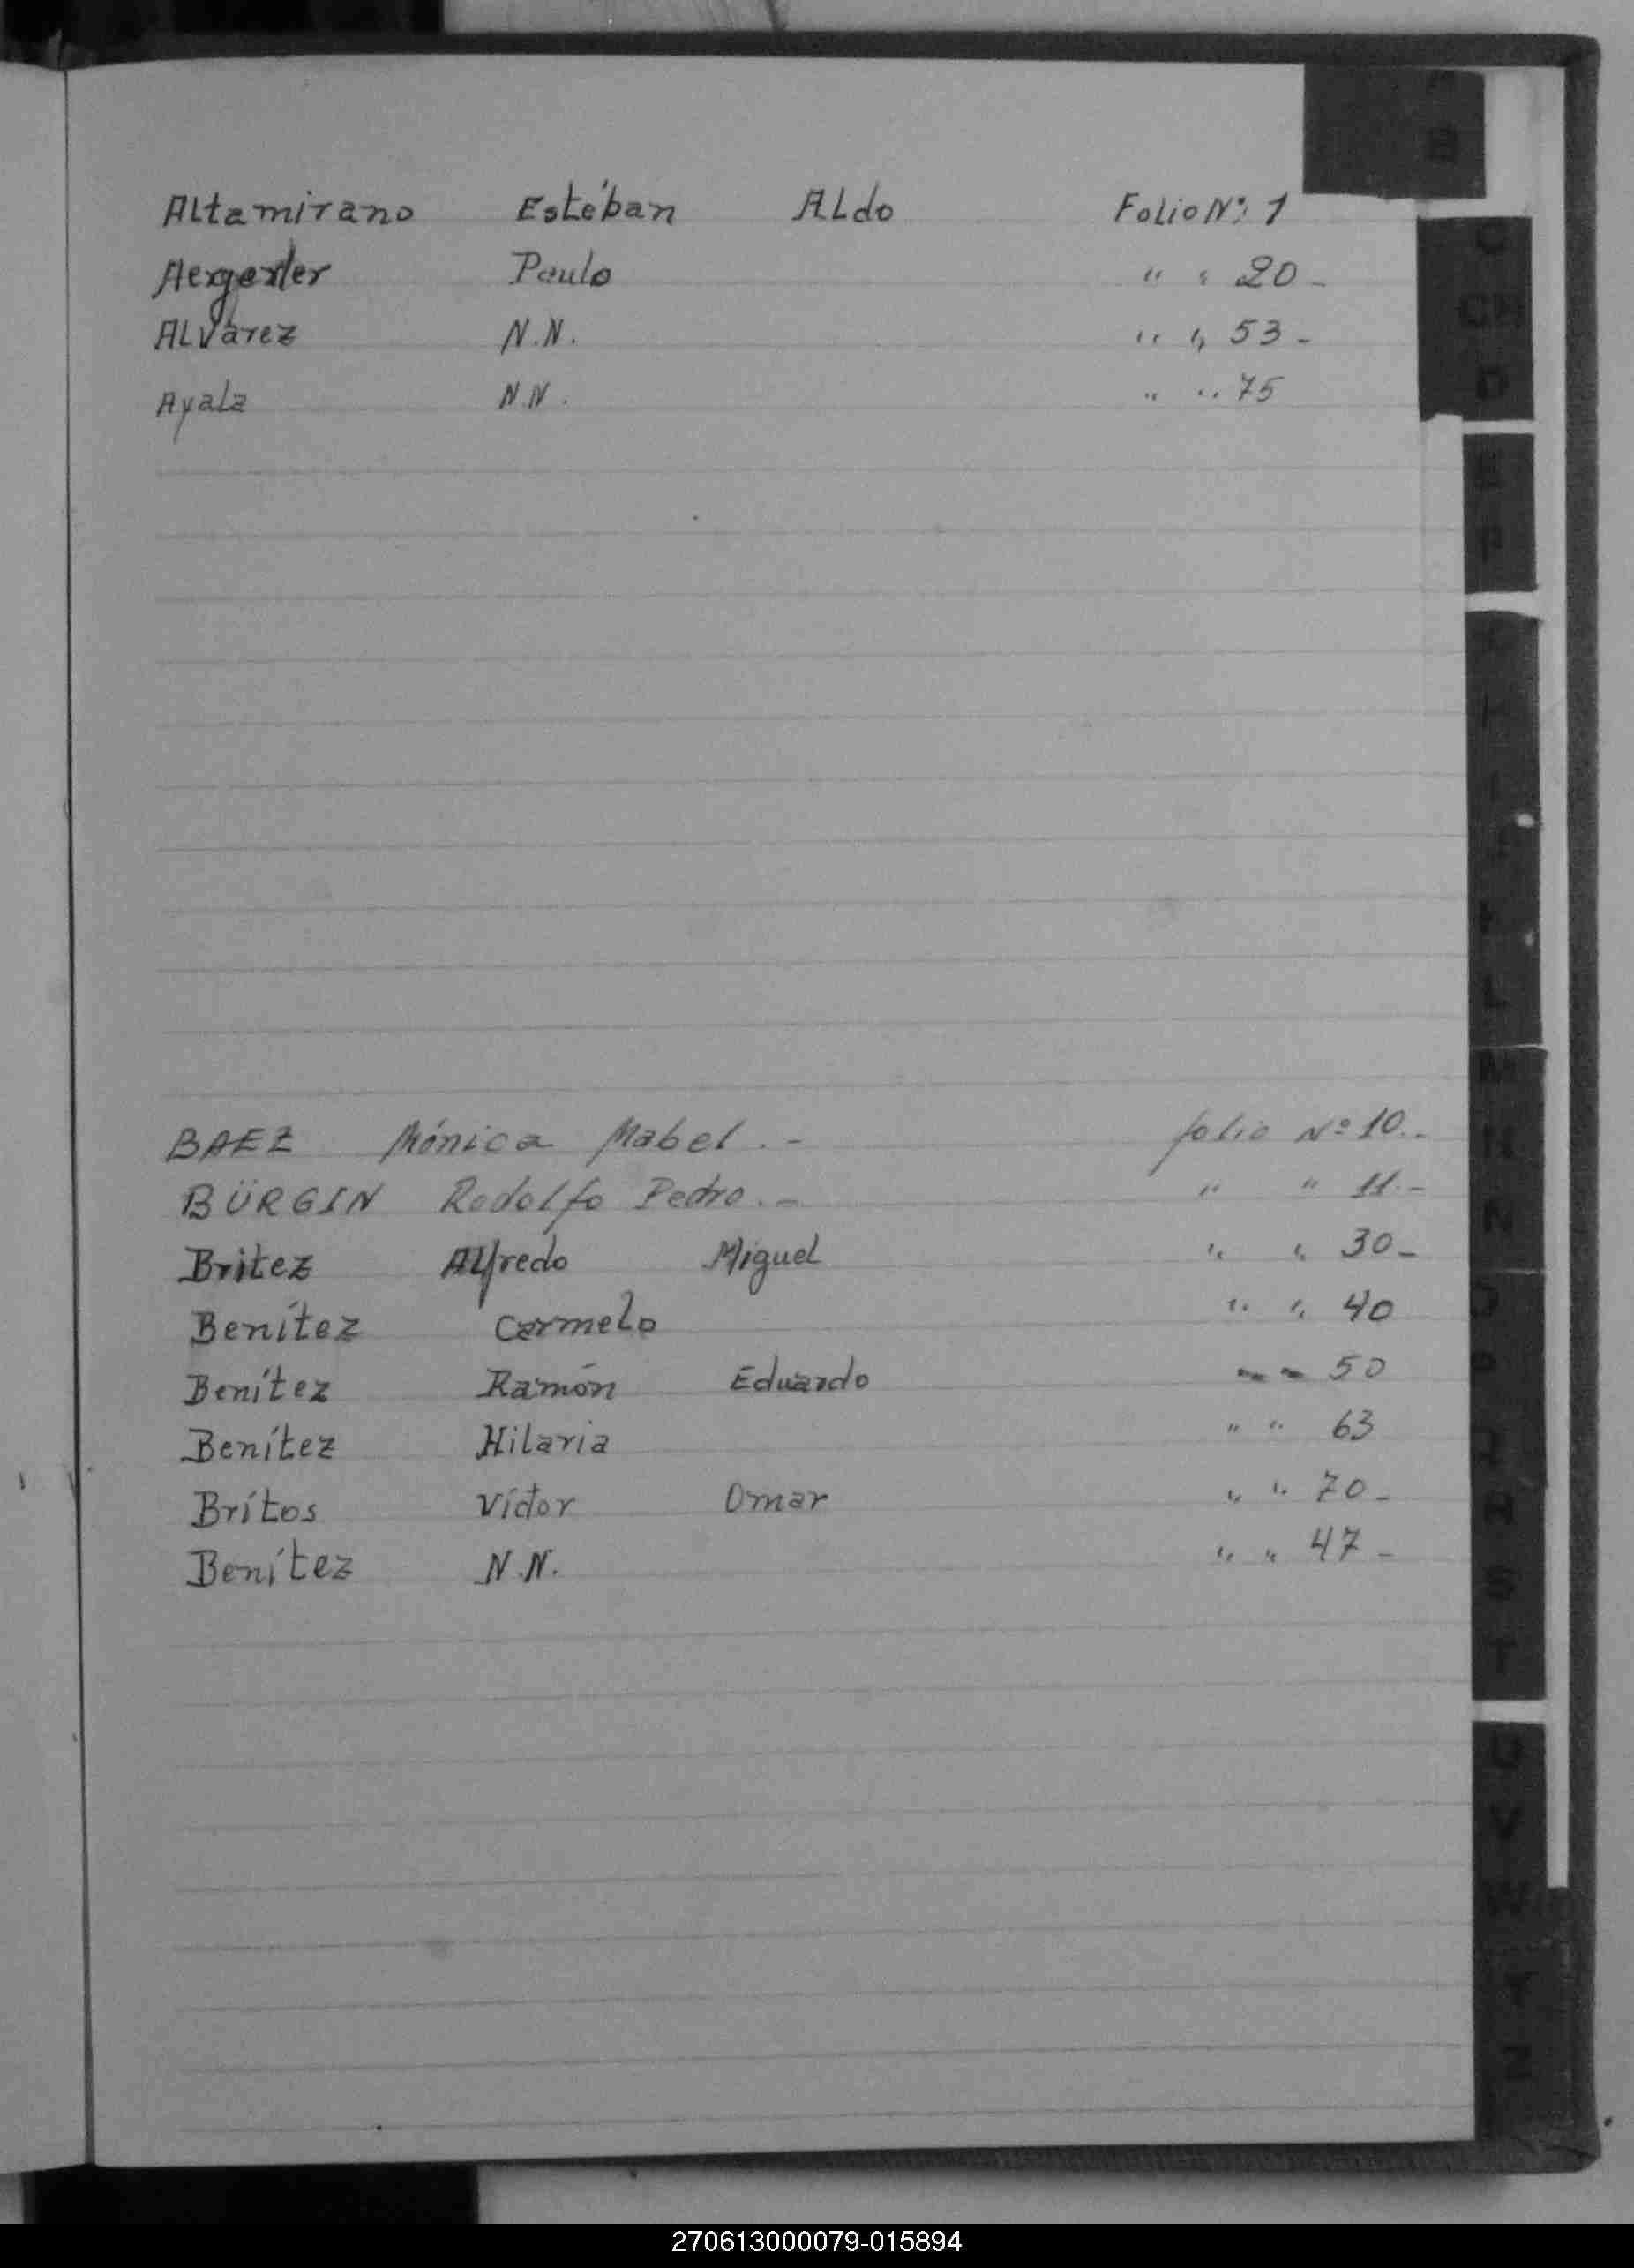 Altamirano Estéban Aldo Folio Nº 1
Paulo " " 20 -
Alvarez N.N. " " 53 -
Ayala N.N. " " 75
BAEZ Mónica Mabel. - folio Nº 10. -
BÜRGIN Rodolfo Pedro. - " " 11. -
Britez Alfredo Miguel " " 30 -
Benítez Carmelo " " 40
Benítez Ramón Eduardo " " 50
Benítez Hilaria " " 63
Brítos Víctor Omar " " 70 -
Benítez N.N. " " 47 -
B
C
CH
D
E
F
L
M
N
S
T
U
V
W
Y
Z
270613000079-015894